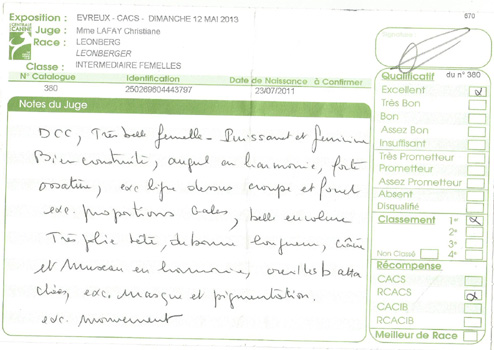 670
Exposition : EVREUX - CACS - DIMANCHE 12 MAI 2013
Juge : Mme LAFAY Christiane
Race : LEONBERG
LEONBERGER
Classe : INTERMEDIAIRE FEMELLES
N° Catalogue Identification Date de Naissance à Confirmer
380 250269604443797 23/07/2011
CENTRALE CANINE
Notes du Juge
DCC, Très belle femelle - Puissant et féminine
Bien construite, angul en harmonie, forte
ossature, exc ligne dessus croupe et fouet
exc. proportions Gales, belle encolure
Très jolie tête, de bonne longueur, crâne
et Museau en harmonie, oreilles b atta
chées, exc. masque et pigmentation.
exc. mouvement
Signature
Qualificatif du n° 380
Excellent
Très Bon
Bon
Assez Bon
Insuffisant
Très Prometteur
Prometteur
Assez Prometteur
Absent
Disqualifié
Classement 1er
2e
3e
Non Classé 4e
Récompense
CACS
RCACS
CACIB
RCACIB
Meilleur de Race